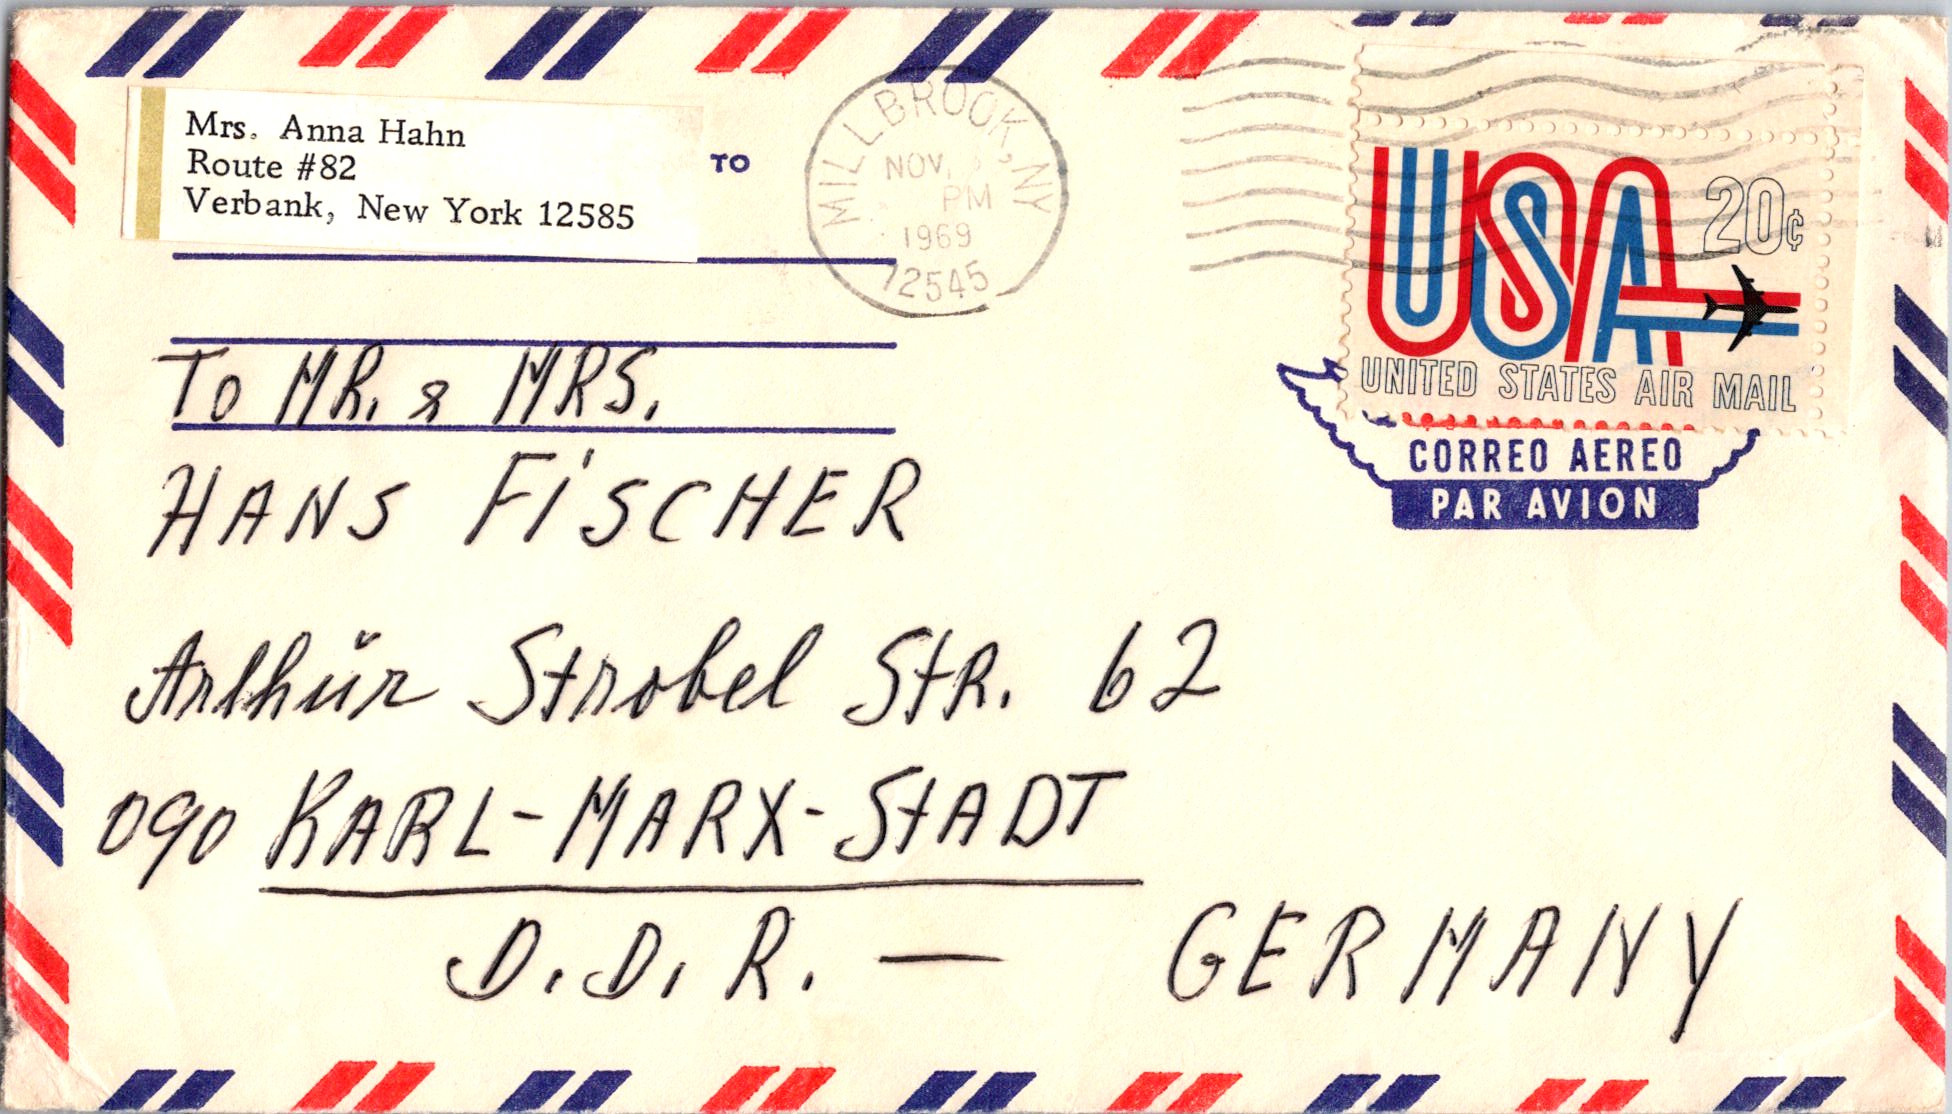 Mrs. Anna Hahn
Route #82
Verbank, New York 12585
TO
MILLBROOK, NY
NOV.
PM
1969
12545
USA 20¢
UNITED STATES AIR MAIL
CORREO AEREO
PAR AVION
To MR. & MRS.
HANS FiSCHER
Arthŭr Strobel StR. 62
090 KARL-MARX-StADT
D.D.R. — GERMANY